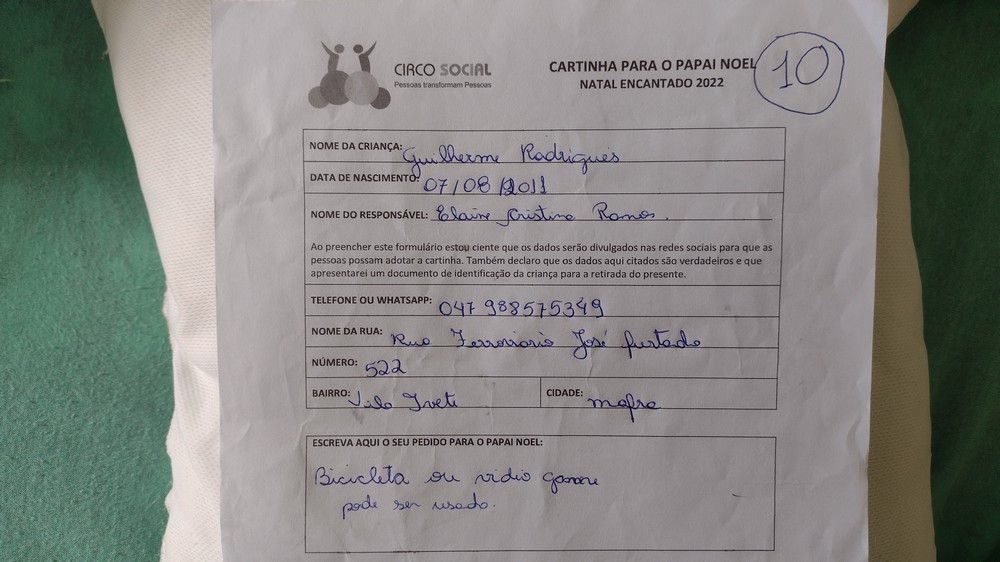 CIRCO SOCIAL
Pessoas transformam Pessoas
CARTINHA PARA O PAPAI NOEL
NATAL ENCANTADO 2022
10
NOME DA CRIANÇA: Guilherme Rodrigues
DATA DE NASCIMENTO: 07/08/2011
NOME DO RESPONSÁVEL: Elaine Cristina Ramos.
Ao preencher este formulário estou ciente que os dados serão divulgados nas redes sociais para que as
pessoas possam adotar a cartinha. Também declaro que os dados aqui citados são verdadeiros e que
apresentarei um documento de identificação da criança para a retirada do presente.
TELEFONE OU WHATSAPP: 047 988575349
NOME DA RUA: Rua Ferroviario José furtado
NÚMERO: 522
BAIRRO: Vila Ivete CIDADE: mafra
ESCREVA AQUI O SEU PEDIDO PARA O PAPAI NOEL:
Bicicleta ou vidio
pode ser usado.